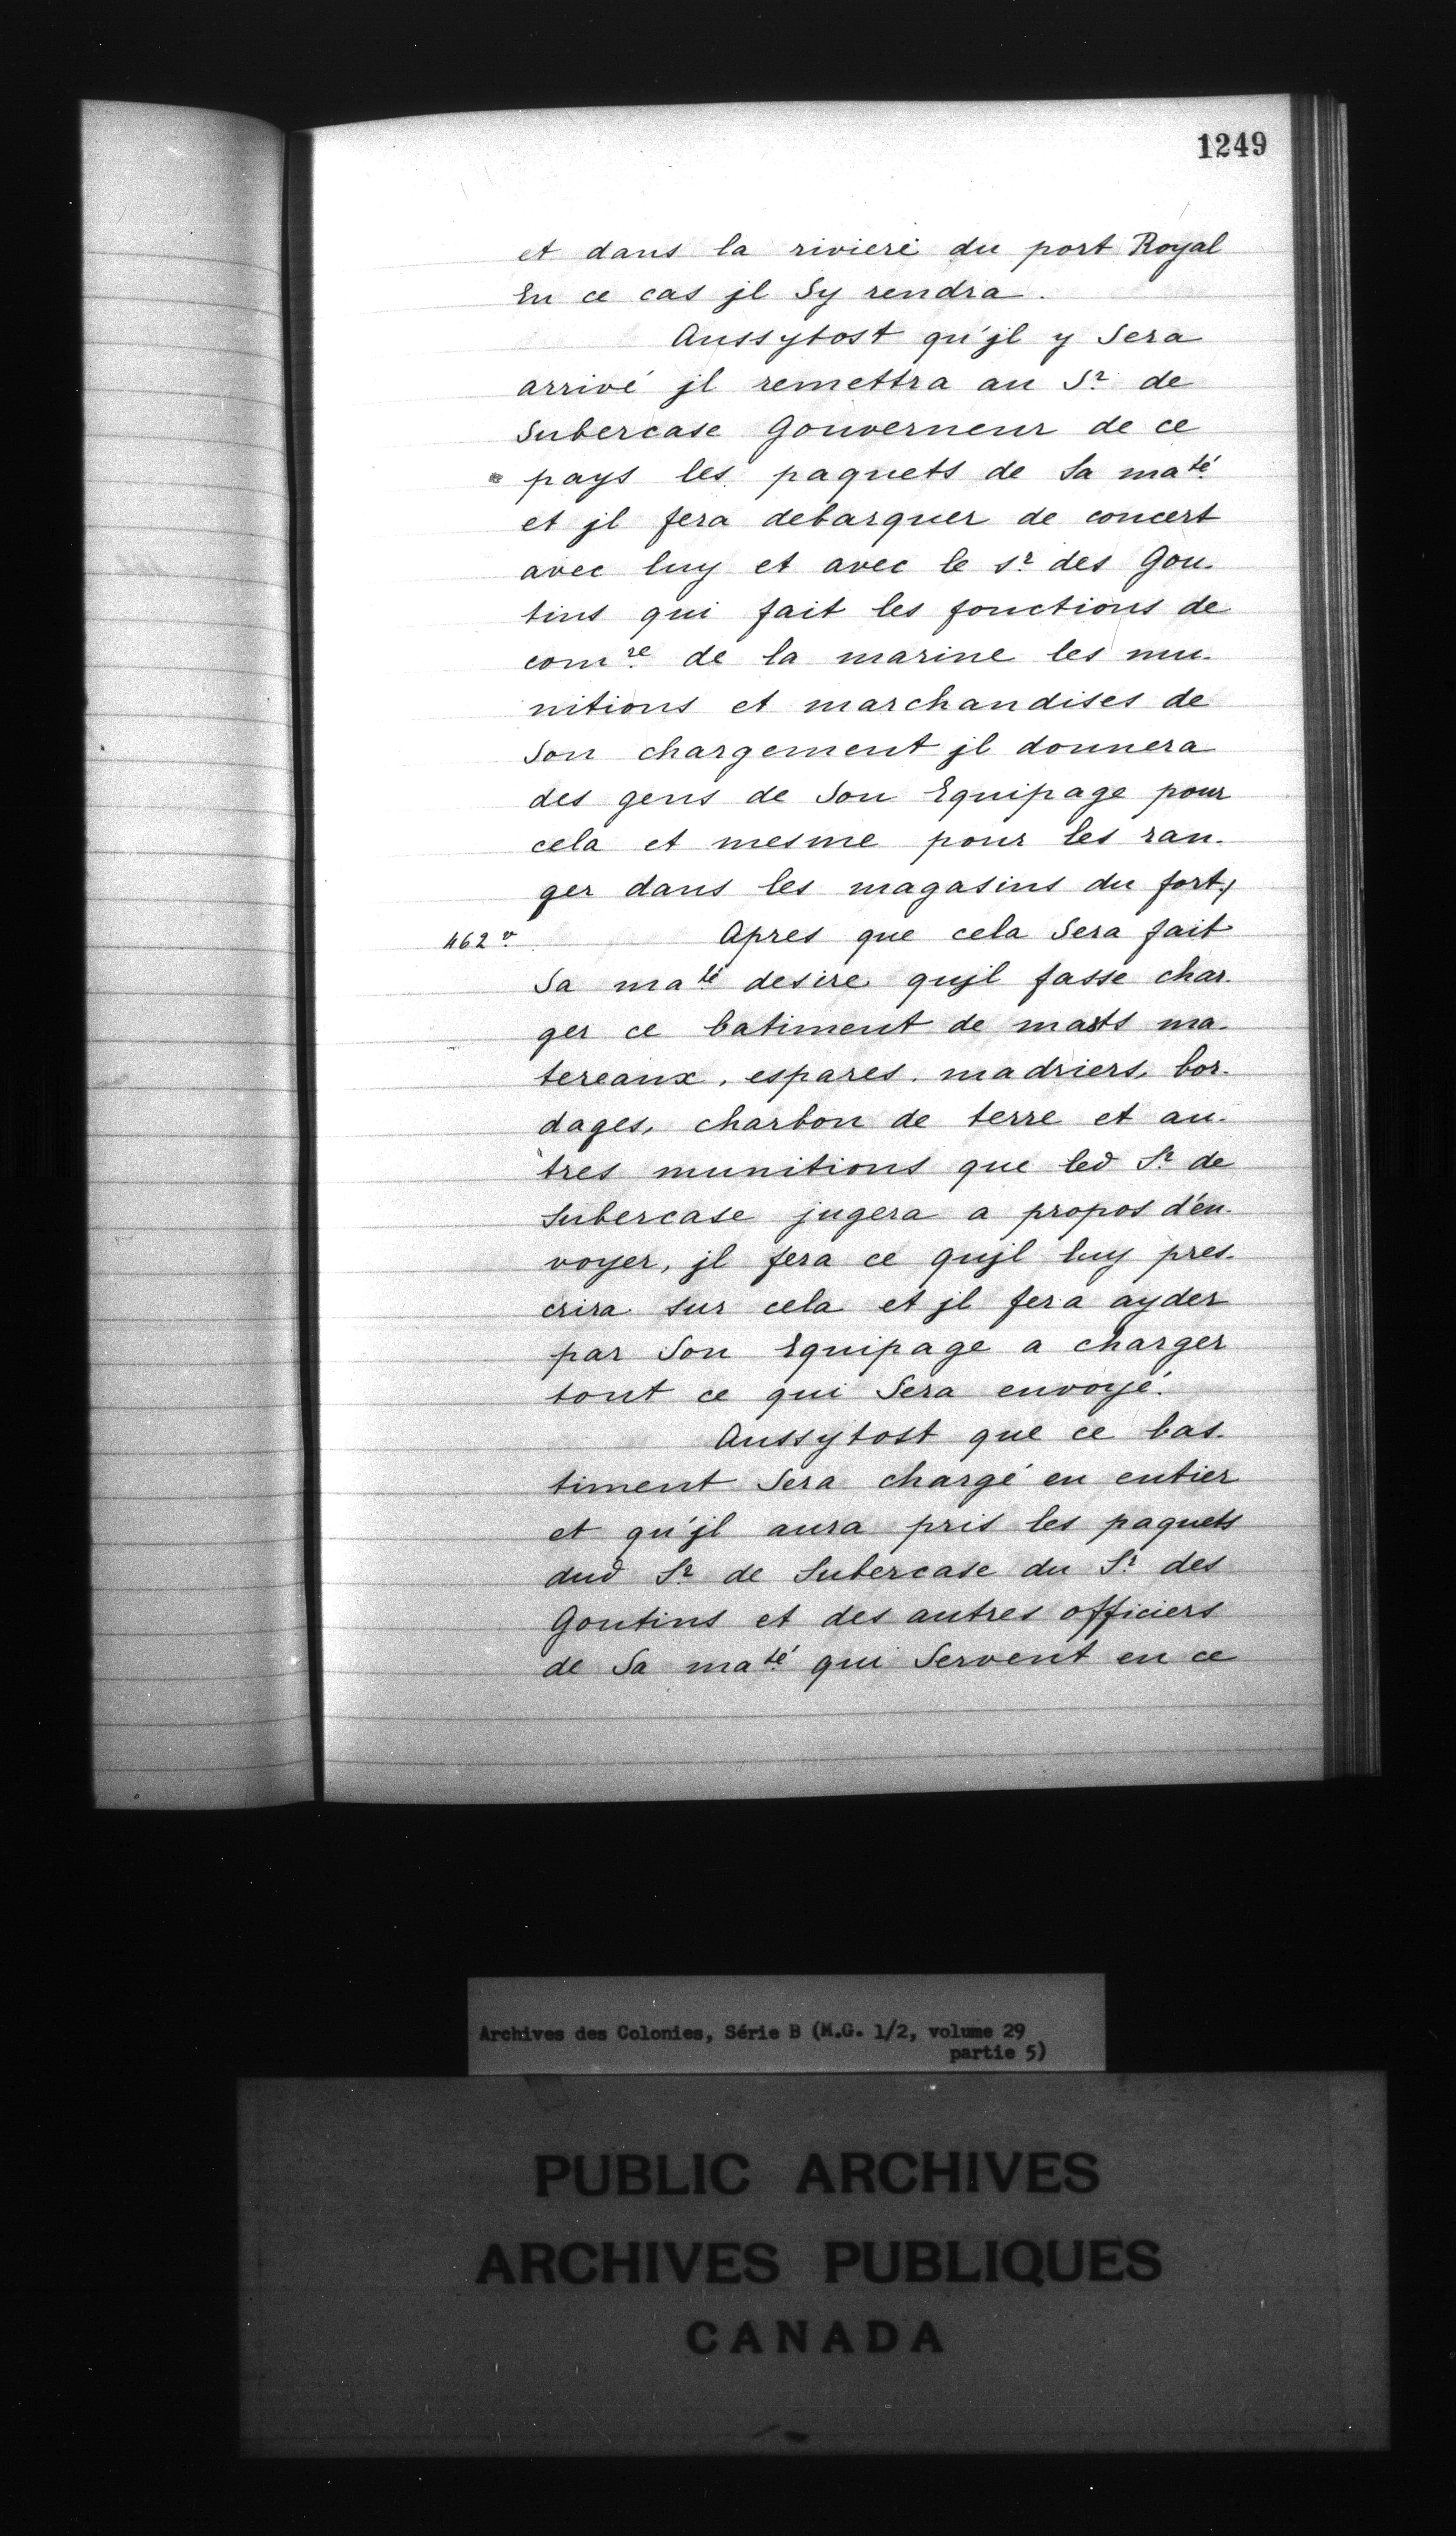 1249
et dans la riviere du port Royal
En ce cas jl Sy rendra.
Aussytost qu'jl y Sera
arrivé jl remettra au Sr. de
Subercase Gouverneur de ce
pays les paquets de Sa maté
et jl fera debarquer de concert
avec luy et avec le sr. des Gou-
tins qui fait les fonctions de
comre de la marine les mu-
nitions et marchandises de
Son chargement jl donnera
des gens de Son Equipage pour
cela et mesme pour les ran-
ger dans les magasins du fort,
462 v. Apres que cela Sera fait
Sa maté desire qujl fasse char-
ger ce batiment de masts ma-
tereaux, espares, madriers, bor-
dages, charbon de terre et au-
tres munitions que led Sr. de
Subercase jugera a propos d'en-
voyer, jl fera ce qujl luy pres-
crira sur cela et jl fera ayder
par Son Equipage a charger
tout ce qui Sera envoyé.
Aussytost que ce bas-
timent Sera chargé en entier
et qu'jl aura pris les paquets
dud Sr. de Subercase du Sr. des
Goutins et des autres officiers
de Sa maté qui Servent en ce
Archives des Colonies, Série B (M.G. 1/2, volume 29
partie 5)
PUBLIC ARCHIVES
ARCHIVES PUBLIQUES
CANADA